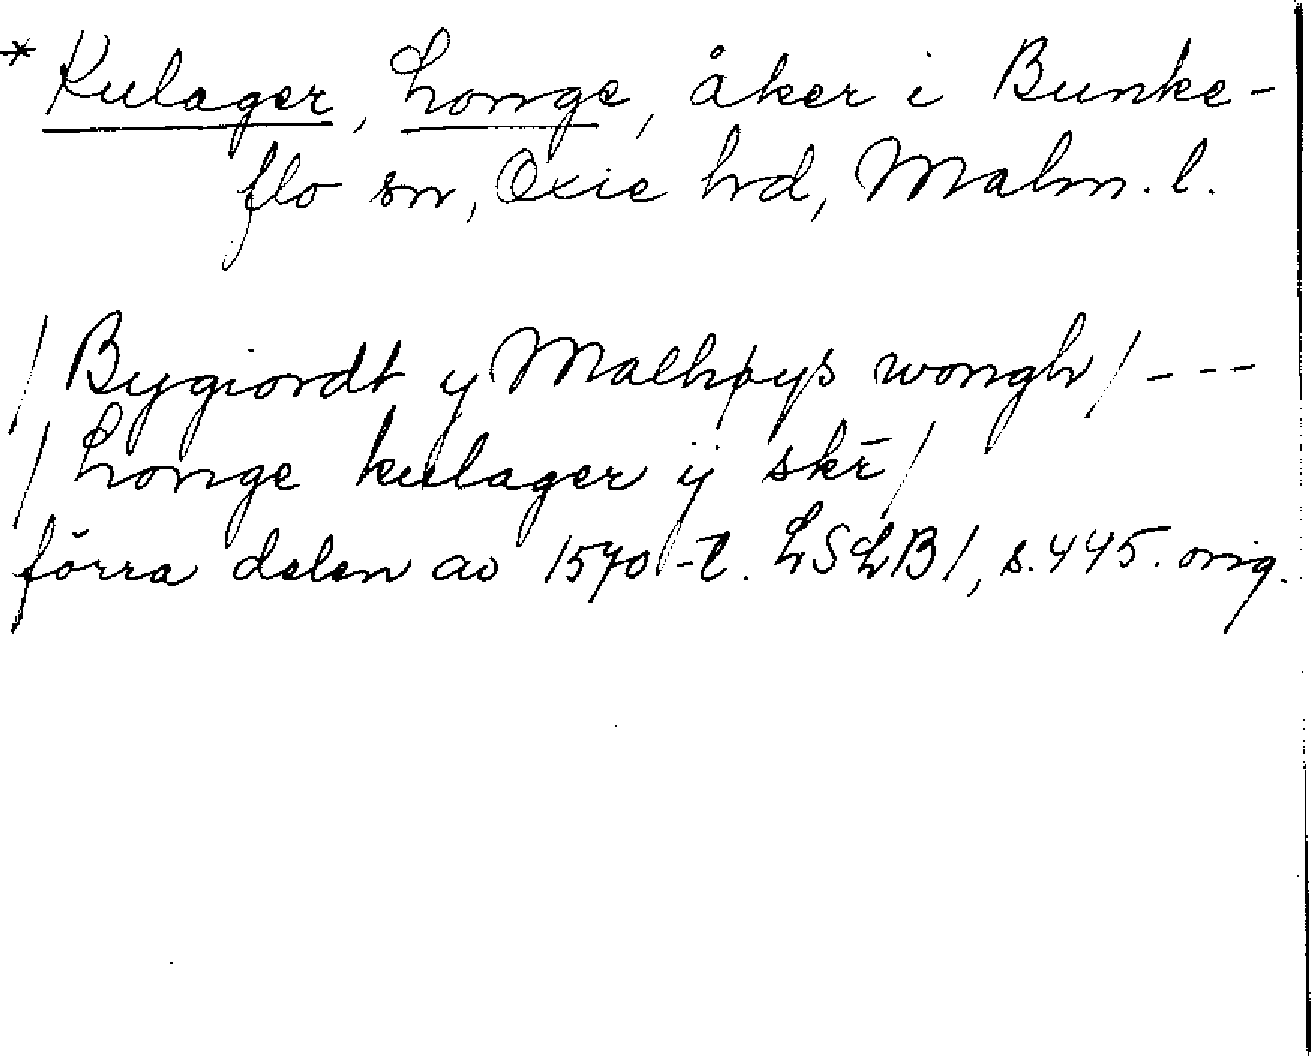 * Kulager, Longe, åker i Bunke-
flo sn, Oxie hd, Malm. l.
/ Bygiordt y Malhøys wongh / ---
/ Longe kulager ij skr̄ /
förra delen av 1570-t. LSLB1, s. 445. orig.